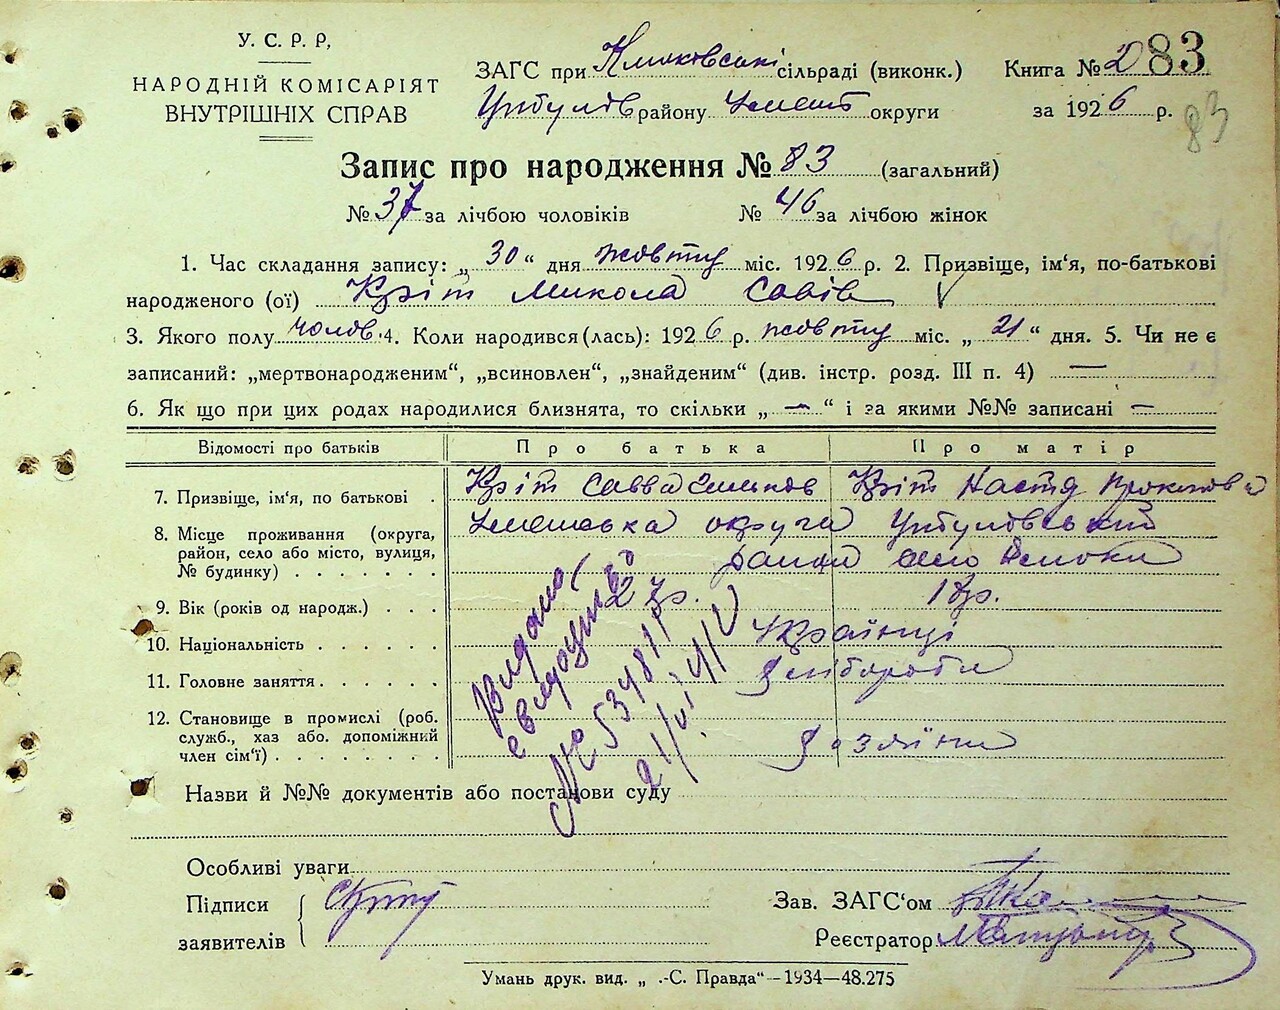 У. С. Р. Р,
НАРОДНІЙ КОМІСАРІЯТ
ВНУТРІШНІХ СПРАВ
ЗАГС при сільраді (виконк.)
району округи
Книга № 2 83
за 1926 р.
83
Запис про народження № 83 (загальний)
№ 37 за лічбою чоловіків № 46 за лічбою жінок
1. Час складання запису: „ 30 “ дня жовтня міс. 1926 р. 2. Призвіще, ім'я, по-батькові
народженого (ої) Кріт Микола Савів
3. Якого полу чолов. 4. Коли народився (лась): 1926 р. жовтня міс. „ 21 “ дня. 5. Чи не є
записаний: „мертвонародженим“, „всиновлен“, „знайденим“ (див. інстр. розд. III п. 4) —
6. Як що при цих родах народилися близнята, то скільки „ — “ і за якими №№ записані —
Відомості про батьків Про батька Про матір
7. Призвіще, ім'я, по батькові Кріт Савва Кріт Настя
8. Місце проживання (округа,
район, село або місто, вулиця,
№ будинку) округа
район село
9. Вік (років од народж.) 27 р.
10. Національність Українці
11. Головне заняття
12. Становище в промислі (роб.
служб., хаз або. допоміжний
член сім'ї)
Видано
№ 534811
21/VI 41
Назви й №№ документів або постанови суду
Особливі уваги
Підписи
заявителів
Зав. ЗАГС'ом
Реєстратор
Умань друк. вид. „ .-С. Правда“—1934—48.275